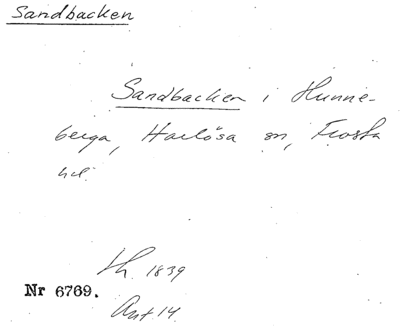 Sandbacken
Sandbacken i Hunne-
berga, Harlösa sn, Frosta
hd.
Lh. 1839
Nr 6769.
Ant 14